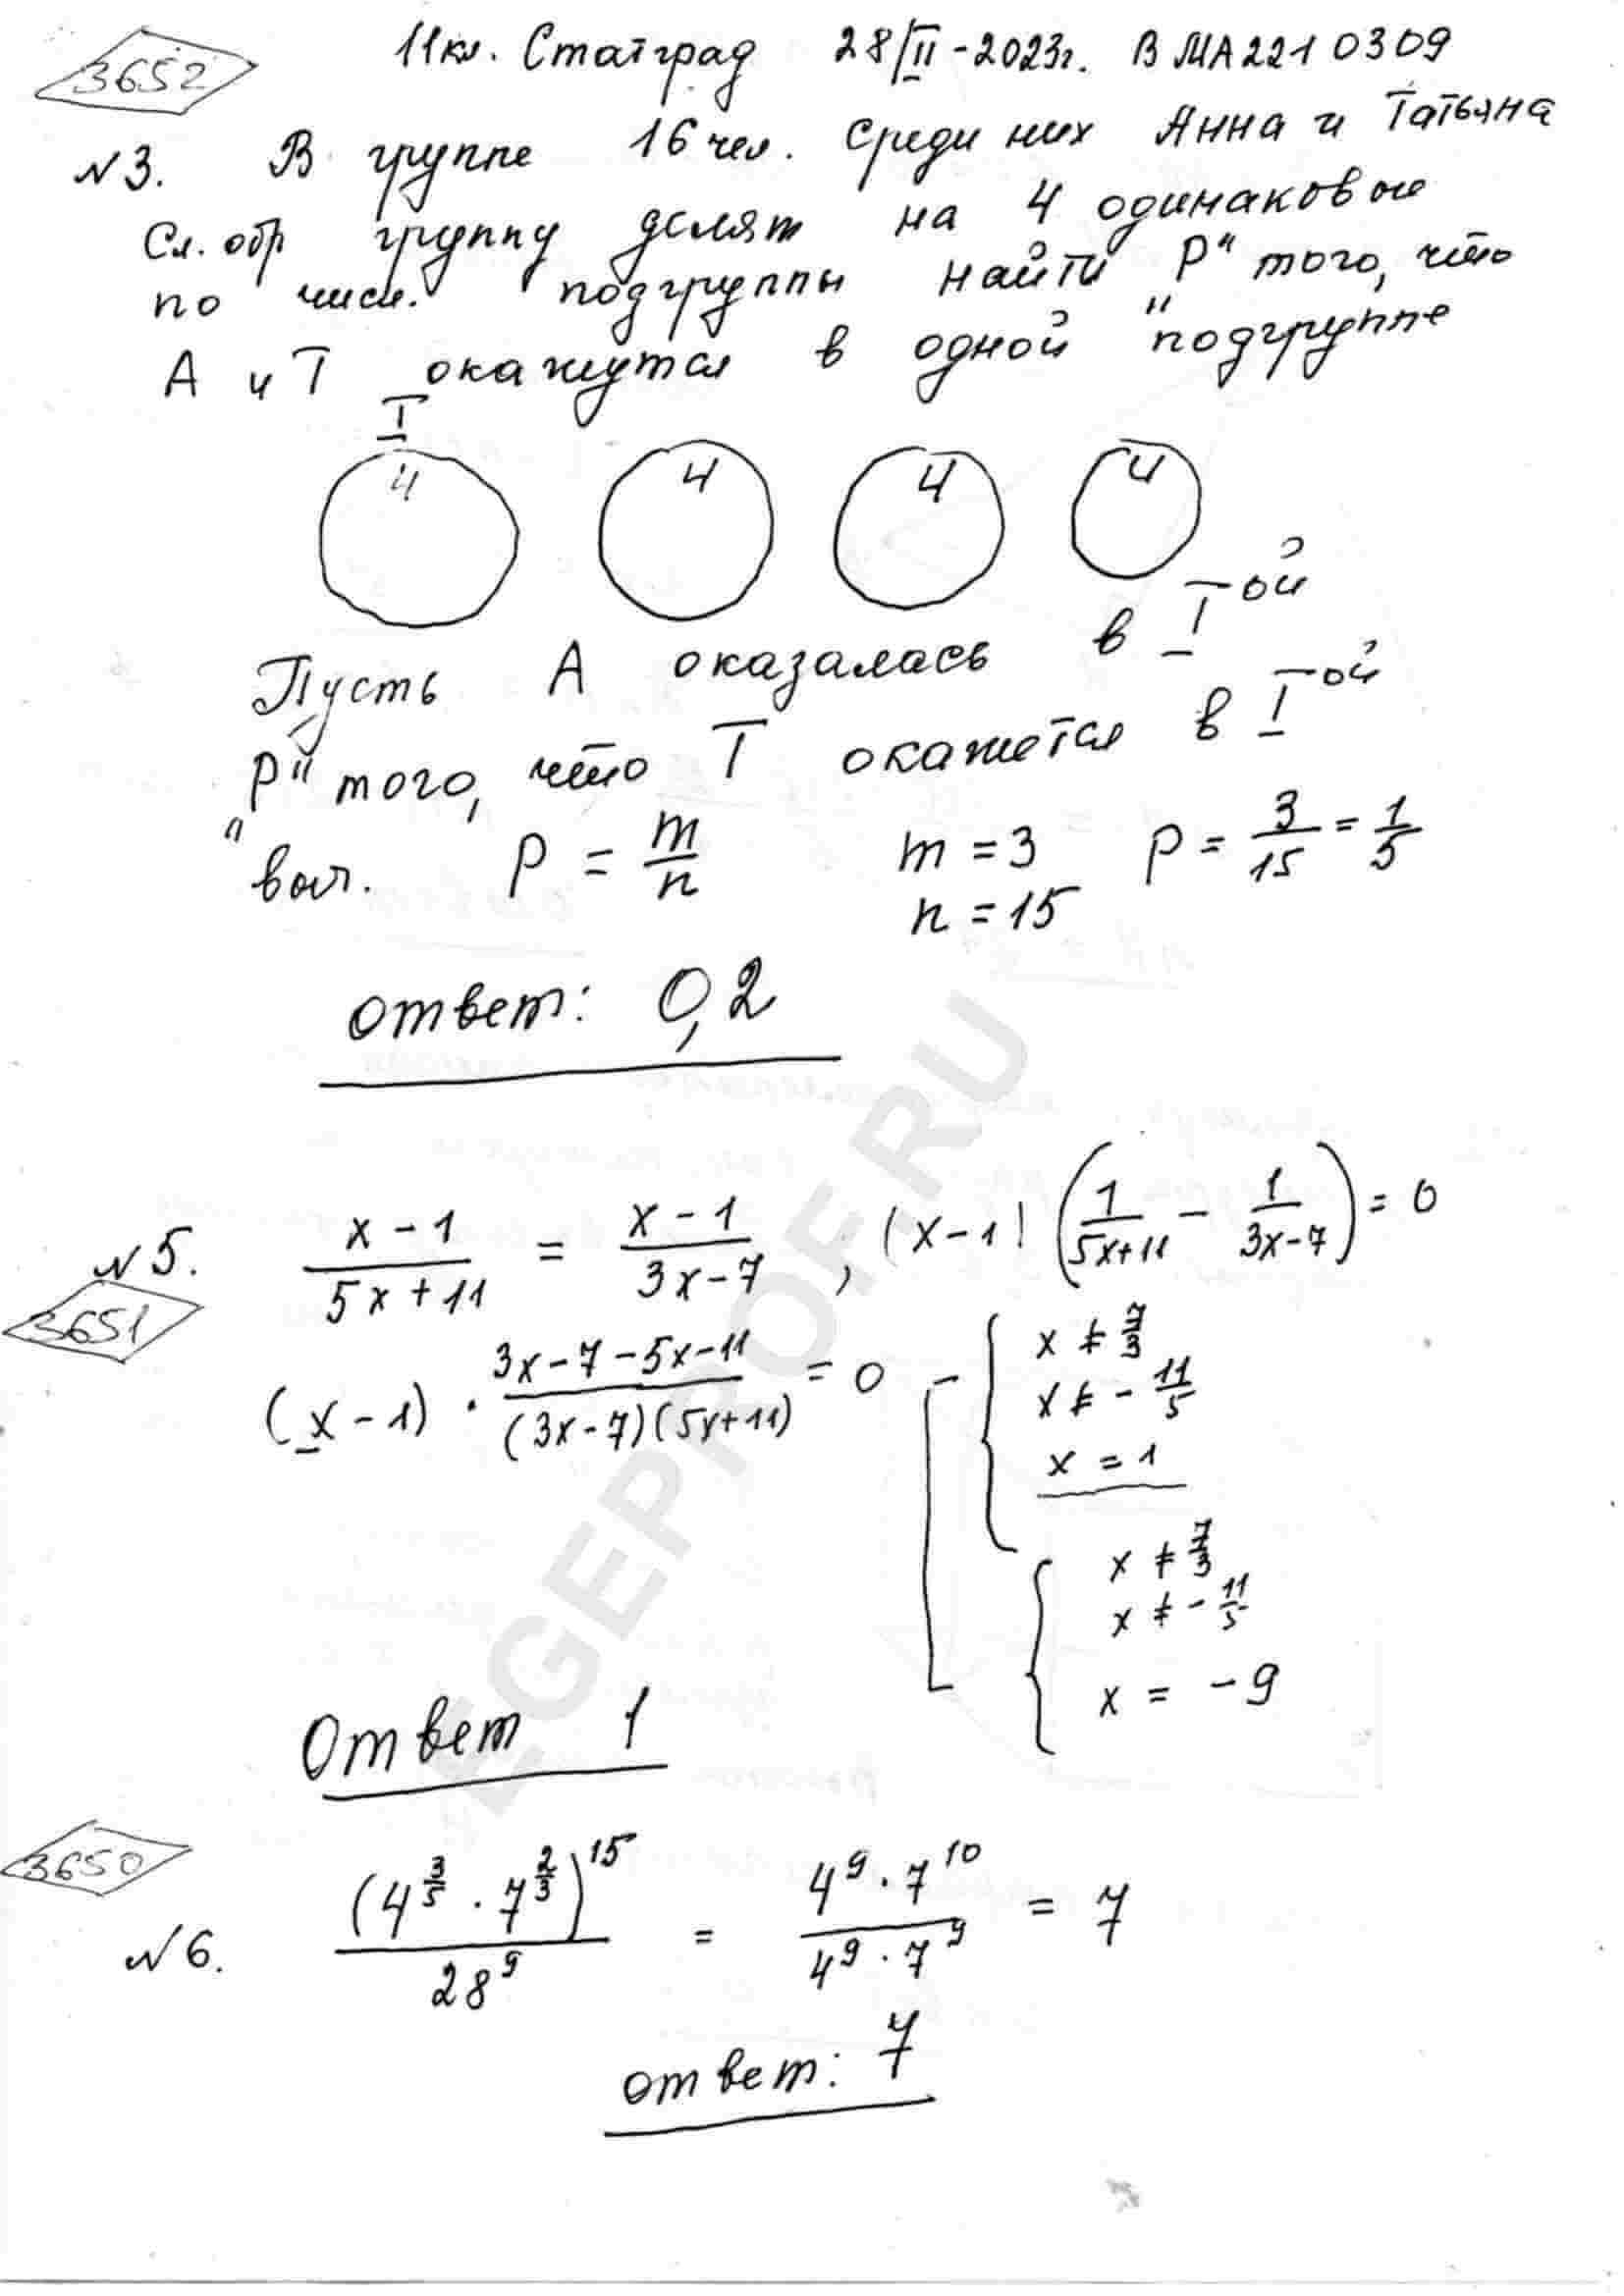 3652
11кл. Статград 28/II-2023г. ВМА2210309
№3. В группе 16 чел. Среди них Анна и Татьяна
Сл. обр группу делят на 4 одинаковые
по числ. подгруппы найти "Р" того, что
А и Т окажутся в одной подгруппе
I
4 4 4 4
Пусть А оказалась в I ой
"Р" того, что Т окажется в I ой
выч. P = m/n m = 3 p = 3/15 = 1/5
n = 15
ответ: 0,2
№5. (x-1)/(5x+11) = (x-1)/(3x-7), (x-1)(1/(5x+11) - 1/(3x-7)) = 0
3651
(x-1) · (3x-7-5x-11)/((3x-7)(5x+11)) = 0
x ≠ 7/3
x ≠ - 11/5
x = 1
x ≠ 7/3
x ≠ - 11/5
x = -9
Ответ 1
3650
№6. (4^(3/5) · 7^(2/3))^15 / 28^9 = (4^9 · 7^10)/(4^9 · 7^9) = 7
ответ: 7
EGEPROF.RU